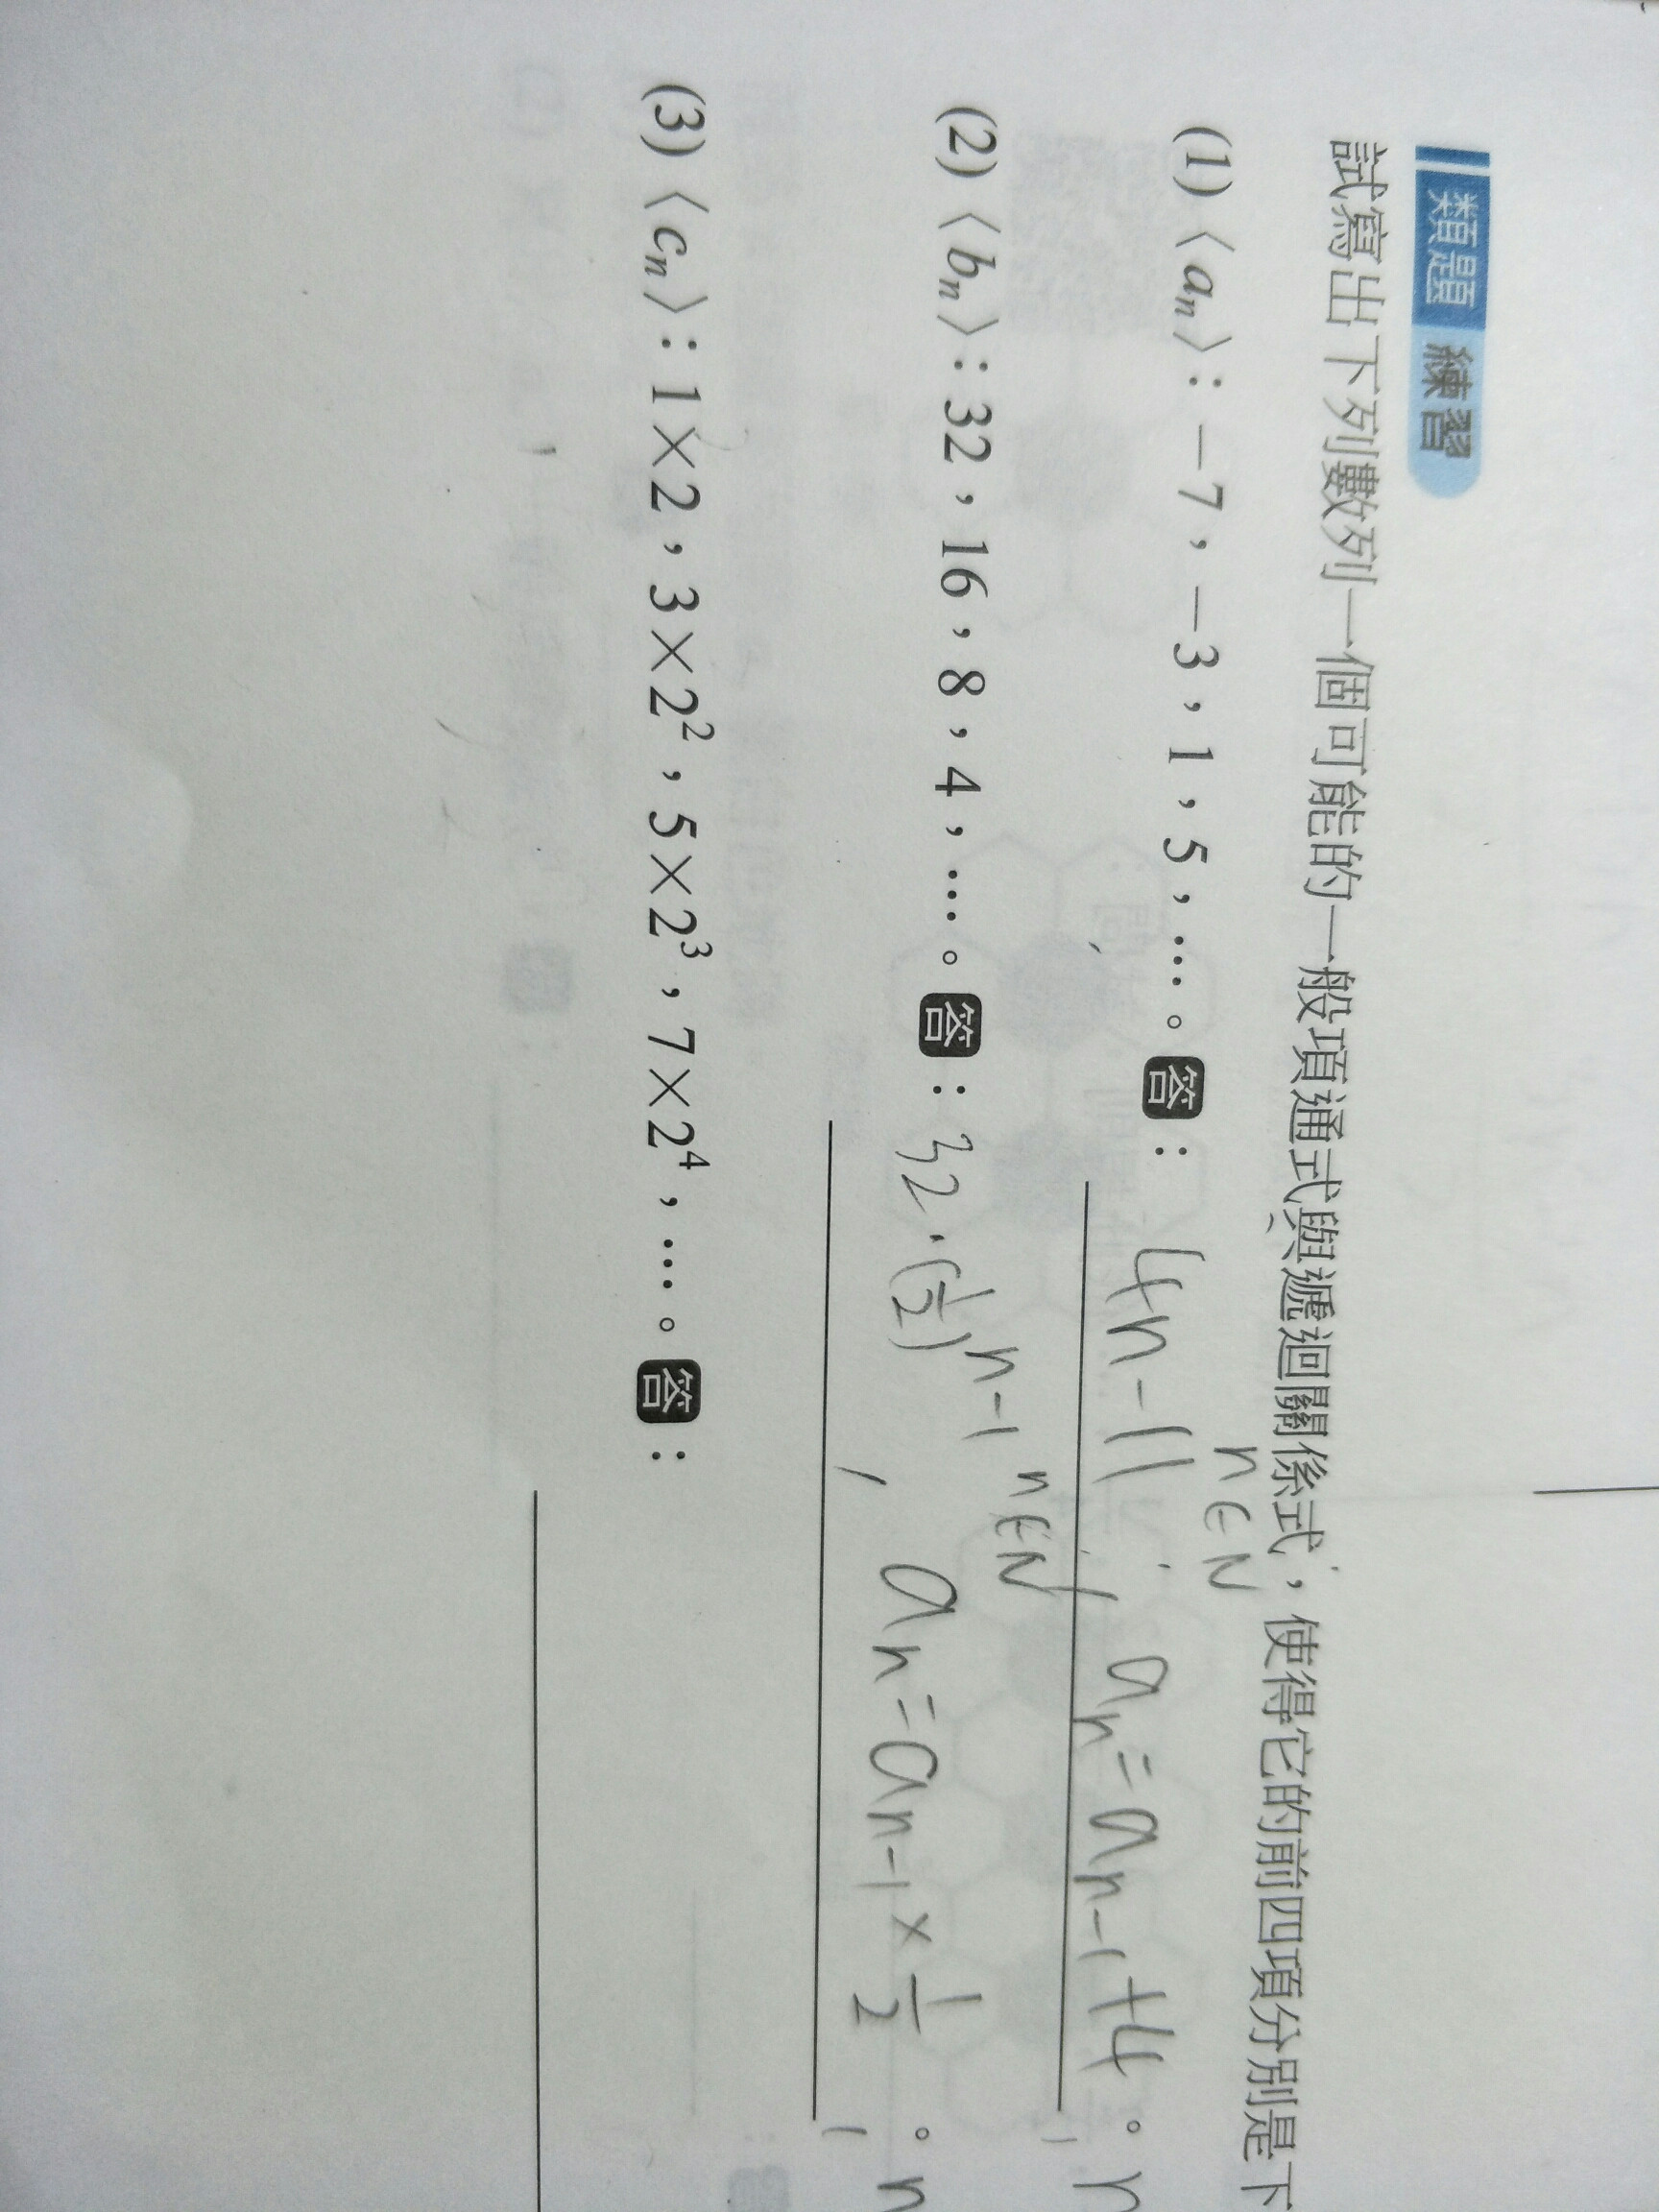 類題 練習
試寫出下列數列一個可能的一般項通式與遞迴關係式，使得它的前四項分別是下
n∈N
(1)〈aₙ〉：－7，－3，1，5，…。答：4n-11，aₙ=aₙ₋₁+4。
n∈N
(2)〈bₙ〉：32，16，8，4，…。答：32·(1/2)ⁿ⁻¹，aₙ=aₙ₋₁×1/2。n
(3)〈cₙ〉：1×2，3×2²，5×2³，7×2⁴，…。答：